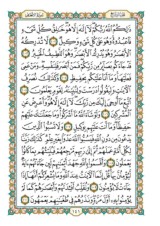 ذَٰلِكُمُ اللَّهُ رَبُّكُمْ لَا إِلَٰهَ إِلَّا هُوَ خَالِقُ كُلِّ شَيْءٍ
فَاعْبُدُوهُ وَهُوَ عَلَىٰ كُلِّ شَيْءٍ وَكِيلٌ لَّا تُدْرِكُهُ
الْأَبْصَارُ وَهُوَ يُدْرِكُ الْأَبْصَارَ وَهُوَ اللَّطِيفُ الْخَبِيرُ
قَدْ جَاءَكُم بَصَائِرُ مِن رَّبِّكُمْ فَمَنْ أَبْصَرَ فَلِنَفْسِهِ وَمَنْ عَمِيَ
فَعَلَيْهَا وَمَا أَنَا عَلَيْكُم بِحَفِيظٍ وَكَذَٰلِكَ نُصَرِّفُ
الْآيَاتِ وَلِيَقُولُوا دَرَسْتَ وَلِنُبَيِّنَهُ لِقَوْمٍ يَعْلَمُونَ
اتَّبِعْ مَا أُوحِيَ إِلَيْكَ مِن رَّبِّكَ لَا إِلَٰهَ إِلَّا هُوَ وَأَعْرِضْ عَنِ
الْمُشْرِكِينَ وَلَوْ شَاءَ اللَّهُ مَا أَشْرَكُوا وَمَا جَعَلْنَاكَ عَلَيْهِمْ
حَفِيظًا وَمَا أَنتَ عَلَيْهِم بِوَكِيلٍ وَلَا تَسُبُّوا الَّذِينَ
يَدْعُونَ مِن دُونِ اللَّهِ فَيَسُبُّوا اللَّهَ عَدْوًا بِغَيْرِ عِلْمٍ كَذَٰلِكَ زَيَّنَّا لِكُلِّ
أُمَّةٍ عَمَلَهُمْ ثُمَّ إِلَىٰ رَبِّهِم مَّرْجِعُهُمْ فَيُنَبِّئُهُم بِمَا كَانُوا
يَعْمَلُونَ وَأَقْسَمُوا بِاللَّهِ جَهْدَ أَيْمَانِهِمْ لَئِن جَاءَتْهُمْ آيَةٌ
لَّيُؤْمِنُنَّ بِهَا قُلْ إِنَّمَا الْآيَاتُ عِندَ اللَّهِ وَمَا يُشْعِرُكُمْ أَنَّهَا إِذَا
جَاءَتْ لَا يُؤْمِنُونَ وَنُقَلِّبُ أَفْئِدَتَهُمْ وَأَبْصَارَهُمْ كَمَا لَمْ
يُؤْمِنُوا بِهِ أَوَّلَ مَرَّةٍ وَنَذَرُهُمْ فِي طُغْيَانِهِمْ يَعْمَهُونَ
١٤١